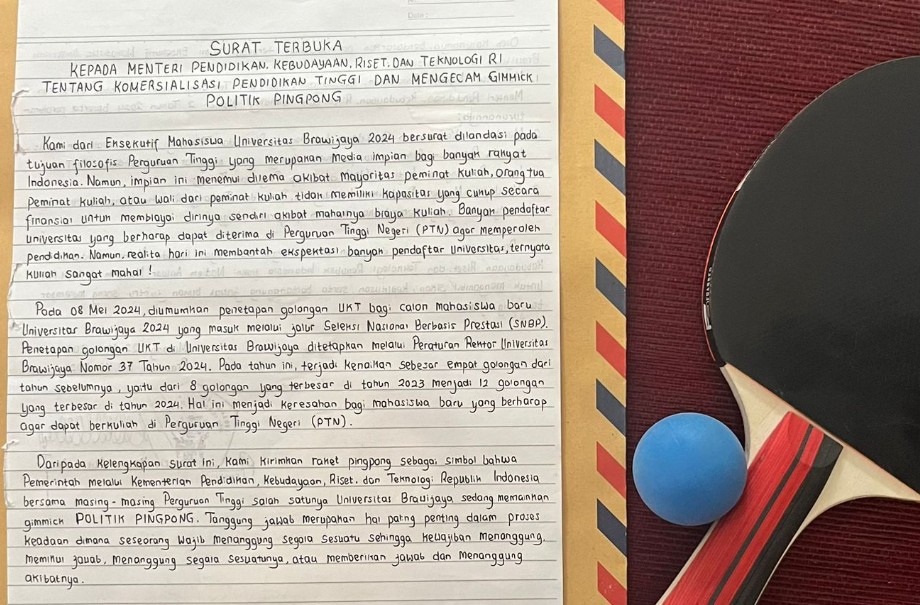 SURAT TERBUKA
KEPADA MENTERI PENDIDIKAN, KEBUDAYAAN, RISET, DAN TEKNOLOGI RI
TENTANG KOMERSIALISASI PENDIDIKAN TINGGI DAN MENGECAM GIMMICK
POLITIK PINGPONG
Kami dari Eksekutif Mahasiswa Universitas Brawijaya 2024 bersurat dilandasi pada
tujuan filosofis Perguruan Tinggi yang merupakan media impian bagi banyak rakyat
Indonesia. Namun, impian ini menemui dilema akibat mayoritas peminat kuliah, orang tua
peminat kuliah, atau wali dari peminat kuliah tidak memiliki kapasitas yang cukup secara
finansial untuk membiayai dirinya sendiri akibat mahalnya biaya kuliah. Banyak pendaftar
universitas yang berharap dapat diterima di Perguruan Tinggi Negeri (PTN) agar memperoleh
pendidikan. Namun, realita hari ini membantah ekspektasi banyak pendaftar universitas, ternyata
kuliah sangat mahal!
Pada 08 Mei 2024, diumumkan penetapan golongan UKT bagi calon mahasiswa baru
Universitas Brawijaya 2024 yang masuk melalui jalur Seleksi Nasional Berbasis Prestasi (SNBP).
Penetapan golongan UKT di Universitas Brawijaya ditetapkan melalui Peraturan Rektor Universitas
Brawijaya Nomor 37 Tahun 2024. Pada tahun ini, terjadi kenaikan sebesar empat golongan dari
tahun sebelumnya, yaitu dari 8 golongan yang terbesar di tahun 2023 menjadi 12 golongan
yang terbesar di tahun 2024. Hal ini menjadi keresahan bagi mahasiswa baru yang berharap
agar dapat berkuliah di Perguruan Tinggi Negeri (PTN).
Daripada kelengkapan surat ini, kami kirimkan raket pingpong sebagai simbol bahwa
Pemerintah melalui Kementerian Pendidikan, Kebudayaan, Riset, dan Teknologi Republik Indonesia
bersama masing-masing Perguruan Tinggi salah satunya Universitas Brawijaya sedang memainkan
gimmick POLITIK PINGPONG. Tanggung jawab merupakan hal paling penting dalam proses
keadaan dimana seseorang wajib menanggung segala sesuatu sehingga kewajiban menanggung,
memikul jawab, menanggung segala sesuatunya, atau memberikan jawab dan menanggung
akibatnya.